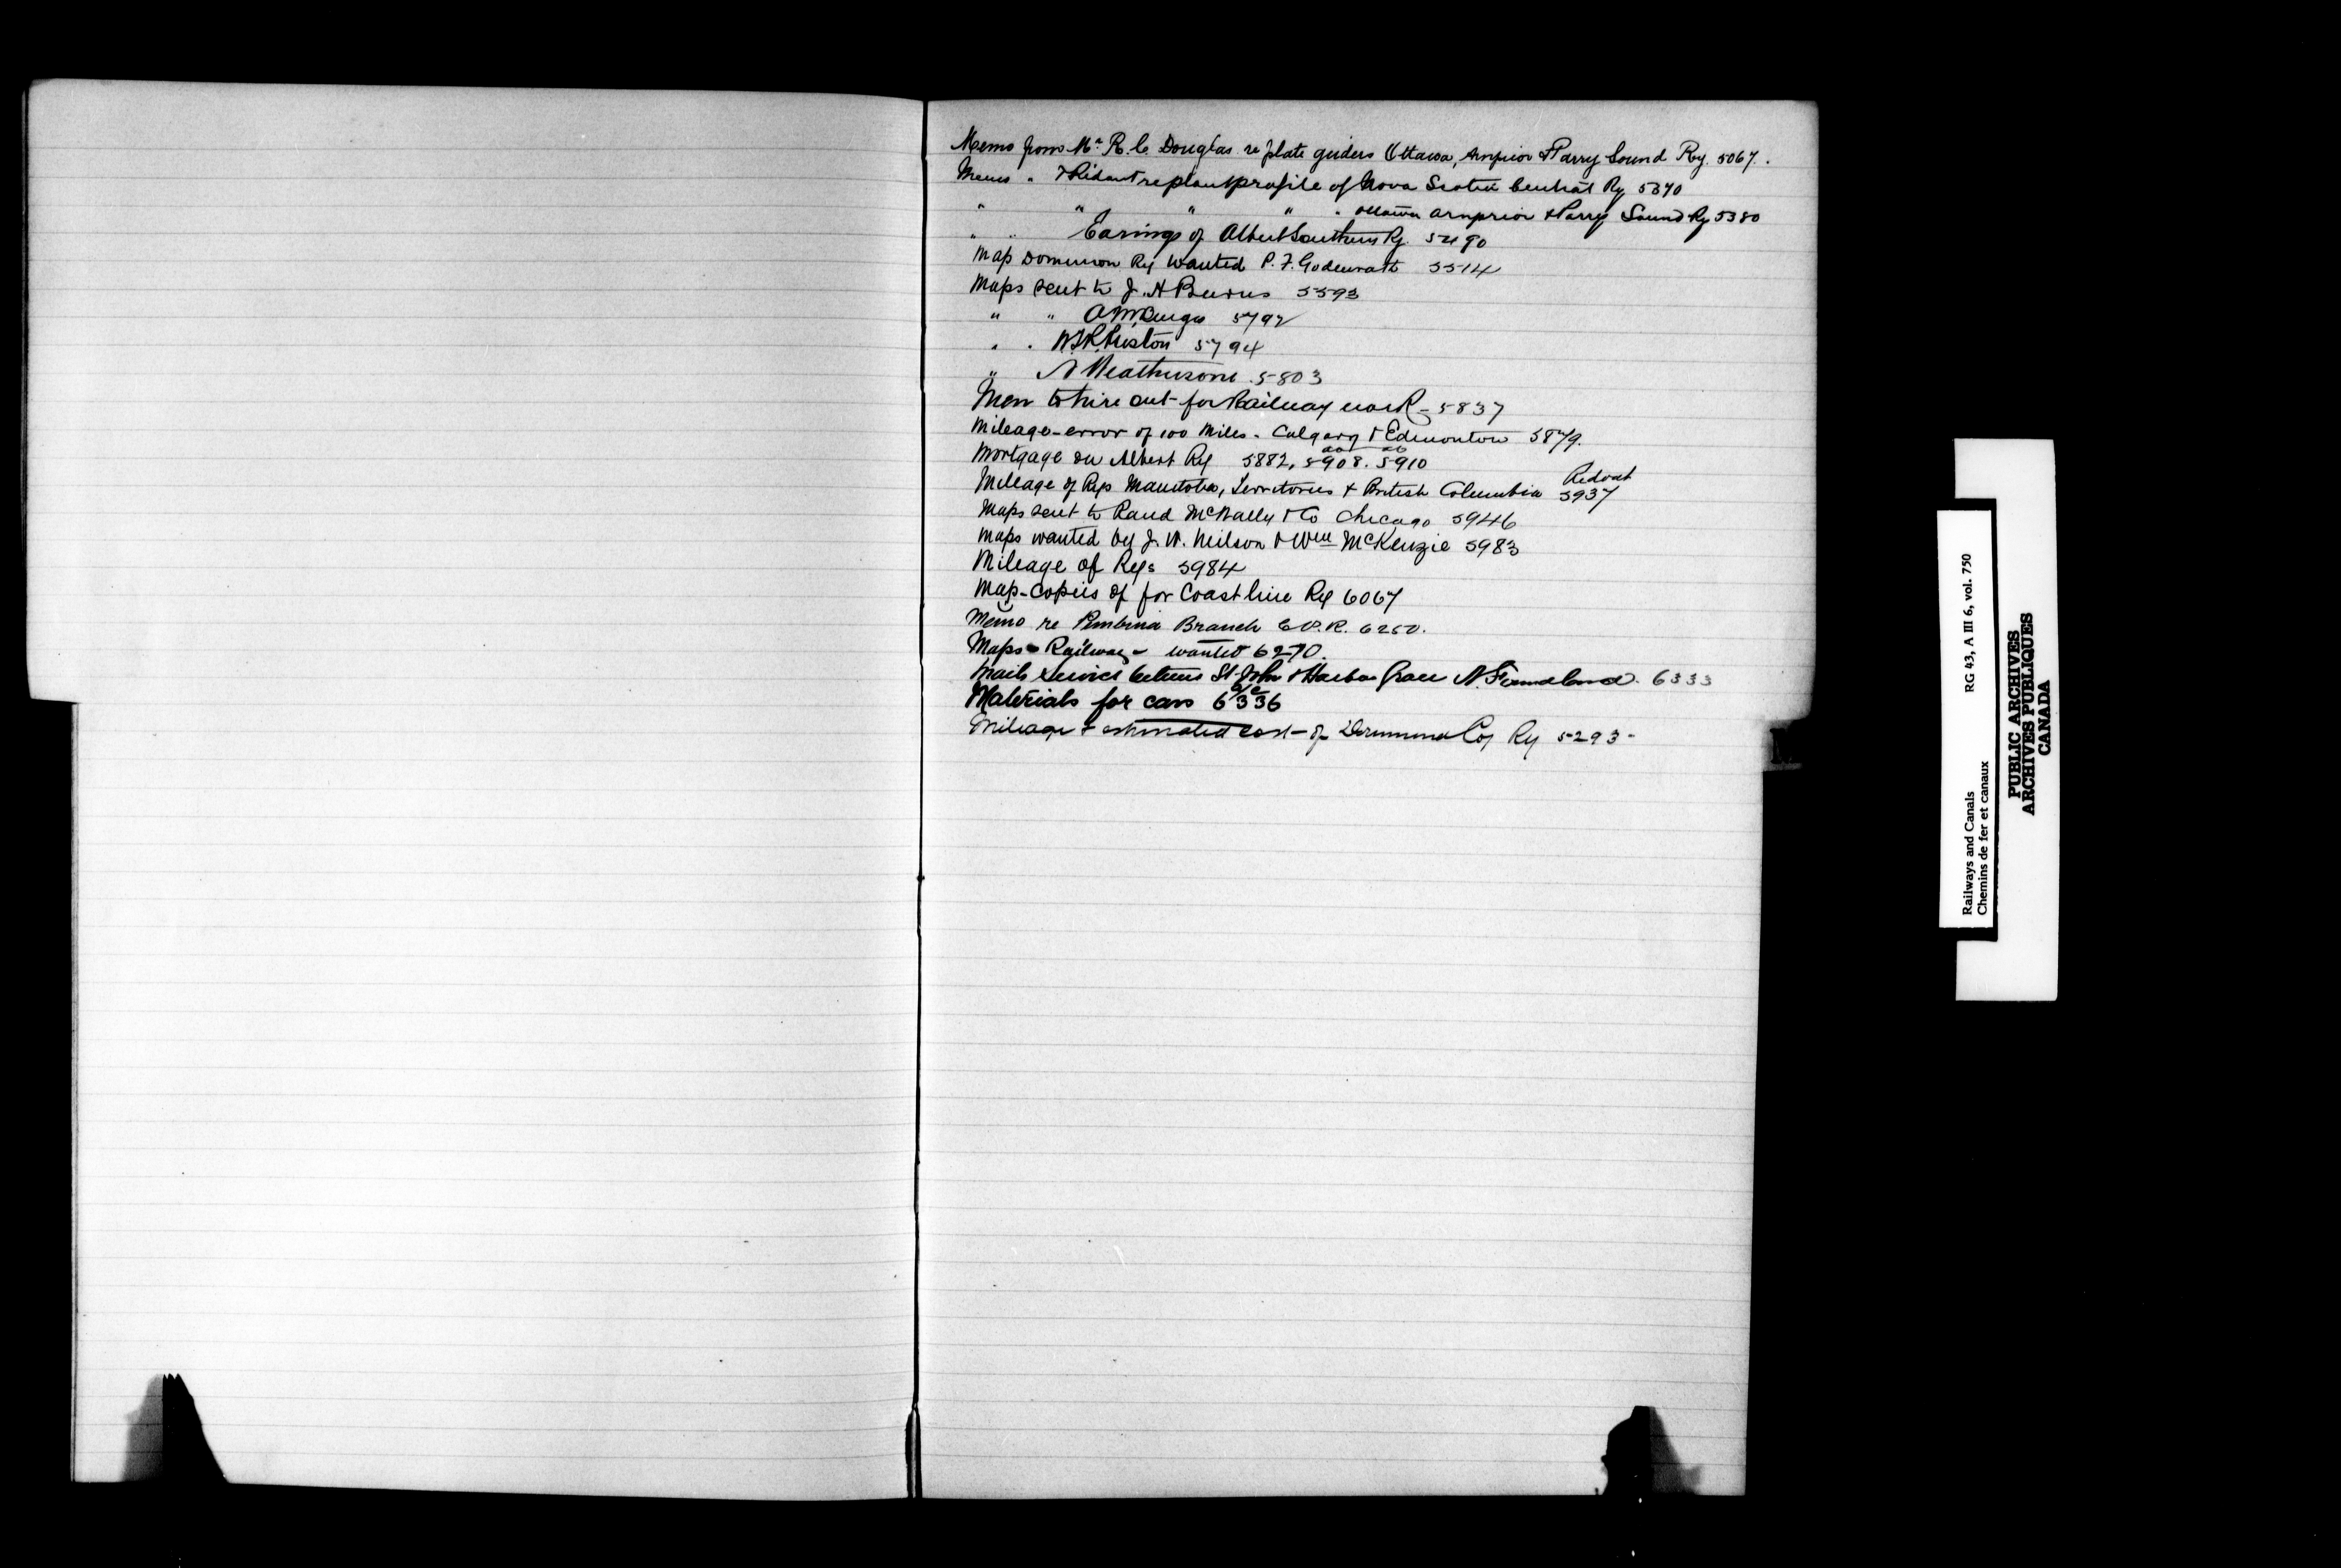 Memo from Mr. R. C. Douglas re plate girders Ottawa, Arnprior & Parry Sound Ry. 5067.
Memo " T Ridout re plan & profile of Nova Scotia Central Ry 5370
" " " " " Ottawa Arnprior & Parry Sound Ry 5380
" " Earings of Albert Southern Ry. 5490
Map Dominion Ry wanted P. F. Godenrath 5514
Maps sent to J. A Burns 5593
" " A M Burges 5792
" " W.T.R. Preston 5794
" 5803
Men to hire out for Railway work - 5837
Mileage - error of 100 miles - Calgary & Edmonton 5879.
Mortgage on Albert Ry 5882, 5908. 5910
Mileage of Rys Manitoba, Territories & British Columbia Ridout 5937
Maps sent to Rand McNally & Co Chicago 5946
Maps wanted by J. W. Neilson & Wm McKenzie 5983
Mileage of Rys 5984
Map - Copies of for Coast line Ry 6067
Memo re Pembina Branch C.P.R. 6250.
Maps - Railway - wanted 6270.
Mail service between St. John & Harbor Grace N. Foundland. 6333
Materials for cars 6336
Mileage & estimated cost - of Drummond Coy Ry 5293 -
Railways and Canals RG 43, A III 6, vol. 750
Chemins de fer et canaux
PUBLIC ARCHIVES
ARCHIVES PUBLIQUES
CANADA